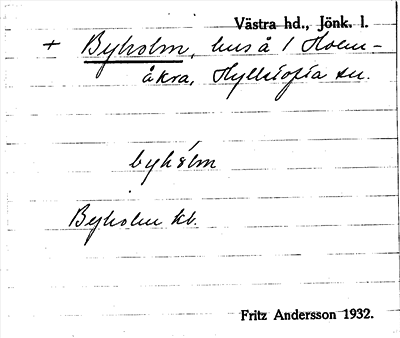 Västra hd., Jönk. l.
+ Byholm, hus å 1 Holm-
åkra, Hylletofta sn.
byhólm
Byholm kb.
Fritz Andersson 1932.